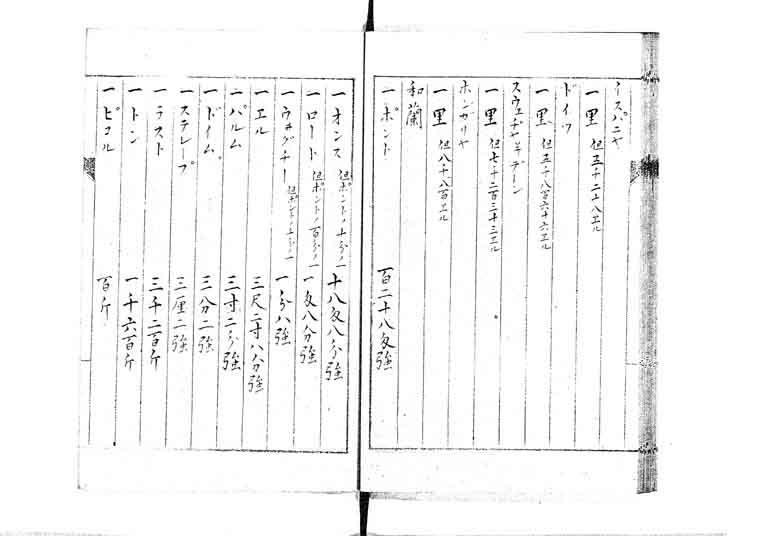 イスパニヤ
一里 但五千二十八エル
ドイツ
一里 但五千八百六十六エル
一里 但七千二百三十三エル
ホンガリヤ
一里 但八千八百エル
和蘭
一ポント 百二十八匁強
一オンス 但ポントノ十分ノ一 十八匁八分強
一ロート 但ポントノ百分ノ一 一匁八分強
一ウヰグチー 但ポントノ千分ノ一 一分八強
一エル 三尺二寸八分強
一パルム 三寸二分強
一ドイム 三分二強
一ステレープ 三厘二強
一ラスト 三千二百斤
一トン 一千六百斤
一ピコル 百斤